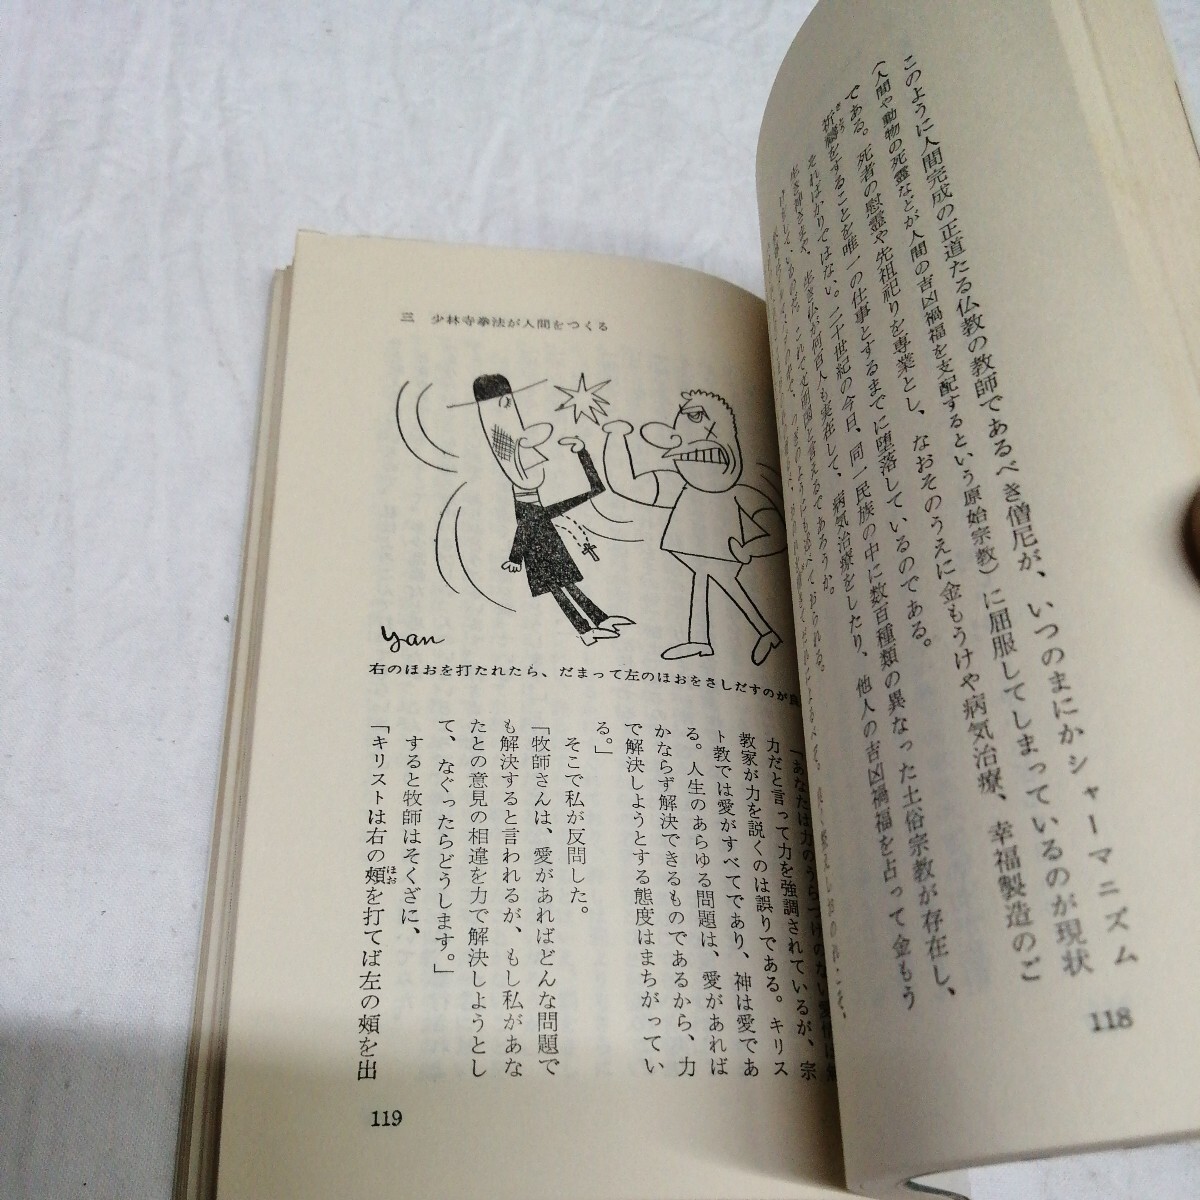 このように人間完成の正道たる仏教の教師であるべき僧尼が、いつのまにかシャーマニズム
(人間や動物の死霊などが人間の吉凶禍福を支配するという原始宗教)に屈服してしまっているのが現状
である。死者の慰霊や先祖祀りを専業とし、なおそのうえに金もうけや病気治療、幸福製造のご
祈禱をすることを唯一の仕事とするまでに堕落しているのである。
そればかりではない。二十世紀の今日、同一民族の中に数百種類の異なった土俗宗教が存在し、
生き神さまや、生き仏が何百人も実在して、病気治療をしたり、他人の吉凶禍福を占って金もう
けをして、いるのだ。これで文明国と言えるであろうか。
118
三 少林寺拳法が人間をつくる
yan
右のほおを打たれたら、だまって左のほおをさしだすのが
「あなたは力のうらづけのない愛情は
力だと言って力を強調されているが、宗
教家が力を説くのは誤りである。キリス
ト教では愛がすべてであり、神は愛であ
る。人生のあらゆる問題は、愛があれば
かならず解決できるものであるから、力
で解決しようとする態度はまちがってい
る。」
そこで私が反問した。
「牧師さんは、愛があればどんな問題で
も解決すると言われるが、もし私があな
たとの意見の相違を力で解決しようとし
て、なぐったらどうします。」
すると牧師はそくざに、
「キリストは右の頰を打てば左の頰を出
ほお
119